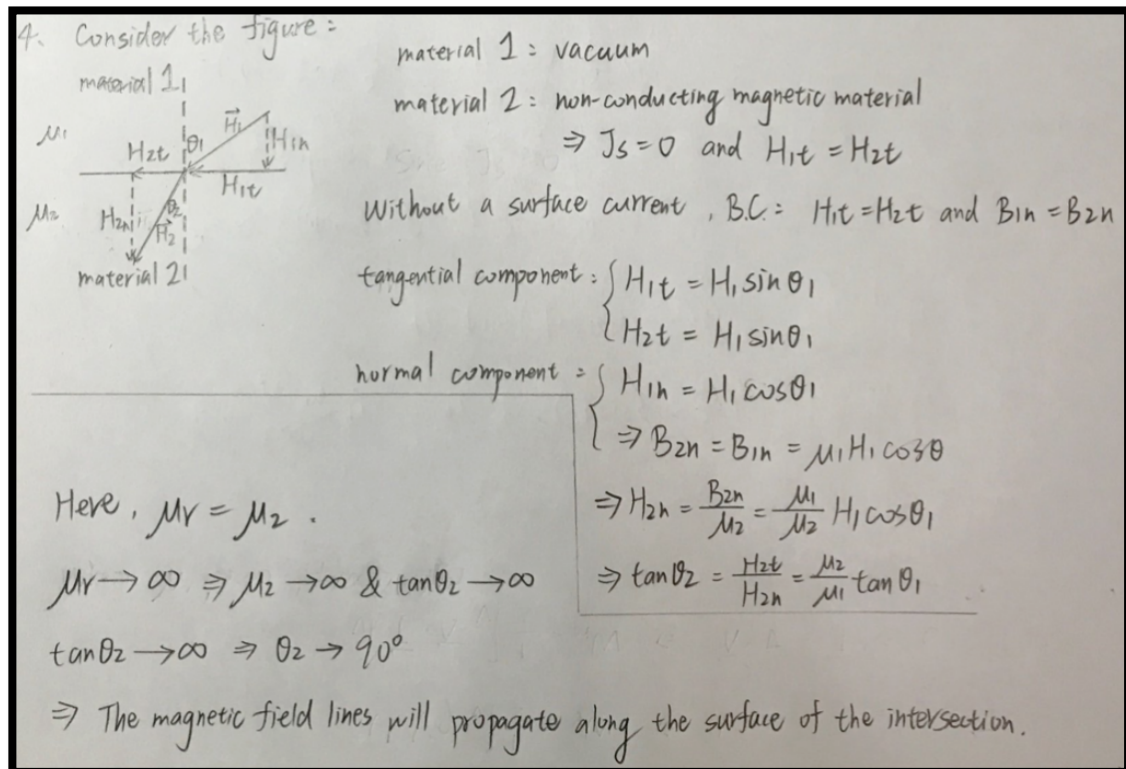 4. Consider the figure:
material 1
μ₁
H2t
θ₁
H⃗₁
H1n
H1t
μ₂
H2n
θ₂
H⃗₂
material 2
material 1: vacuum
material 2: non-conducting magnetic material
⇒ Js = 0 and H1t = H2t
Without a surface current, B.C.: H1t = H2t and B1n = B2n
tangential component: { H1t = H₁ sin θ₁
H2t = H₁ sin θ₁
normal component = { H1n = H₁ cos θ₁
⇒ B2n = B1n = μ₁ H₁ cos θ
⇒ H2n = B2n/μ₂ = μ₁/μ₂ H₁ cos θ₁
⇒ tan θ₂ = H2t/H2n = μ₂/μ₁ tan θ₁
Here, μr = μ₂.
μr → ∞ ⇒ μ₂ → ∞ & tan θ₂ → ∞
tan θ₂ → ∞ ⇒ θ₂ → 90°
⇒ The magnetic field lines will propagate along the surface of the intersection.